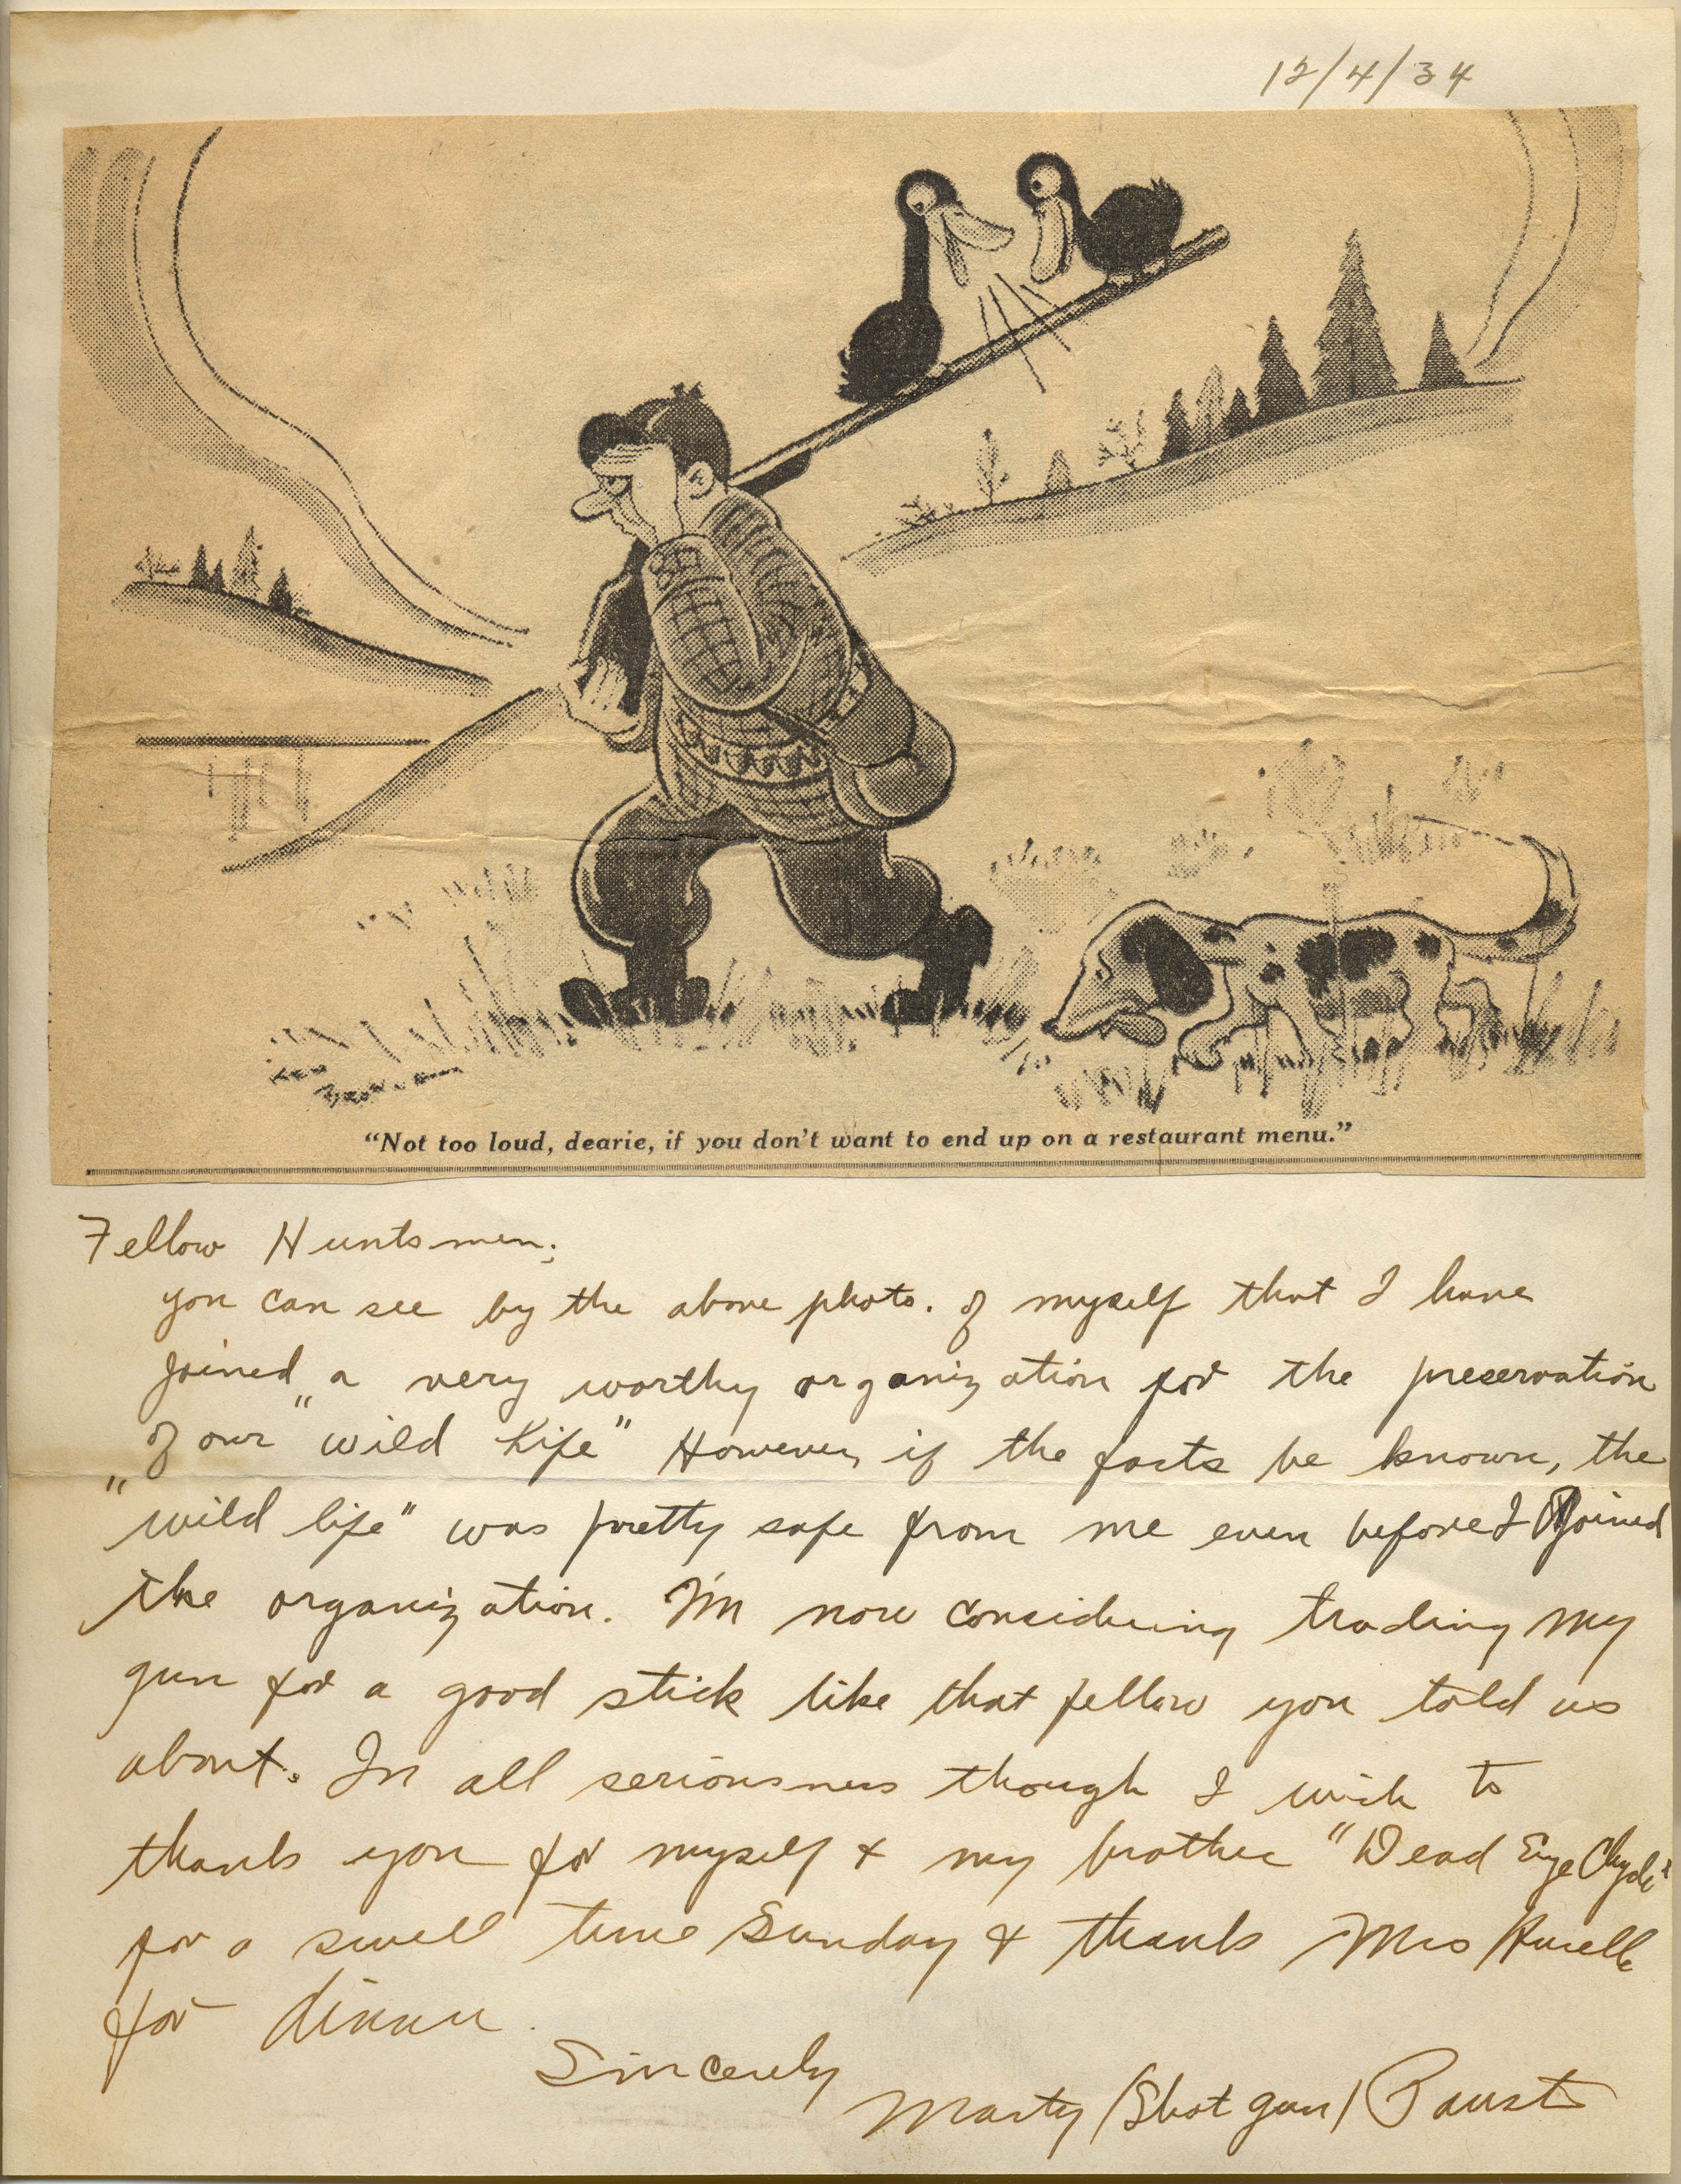 12/4/34
"Not too loud, dearie, if you don't want to end up on a restaurant menu."
Fellow Huntsmen;
you can see by the above photo. of myself that I have
joined a very worthy organization for the preservation
of our "wild life" However, if the facts be known, the
"wild life" was pretty safe from me even before I joined
the organization. I'm now considering trading my
gun for a good stick like that fellow you told us
about. In all seriousness though I wish to
thank you for myself & my brother "Dead Eye Clyde"
for a swell time Sunday & thank Mrs
for dinner.
Sincerely
Marty (Shot gun) Paust